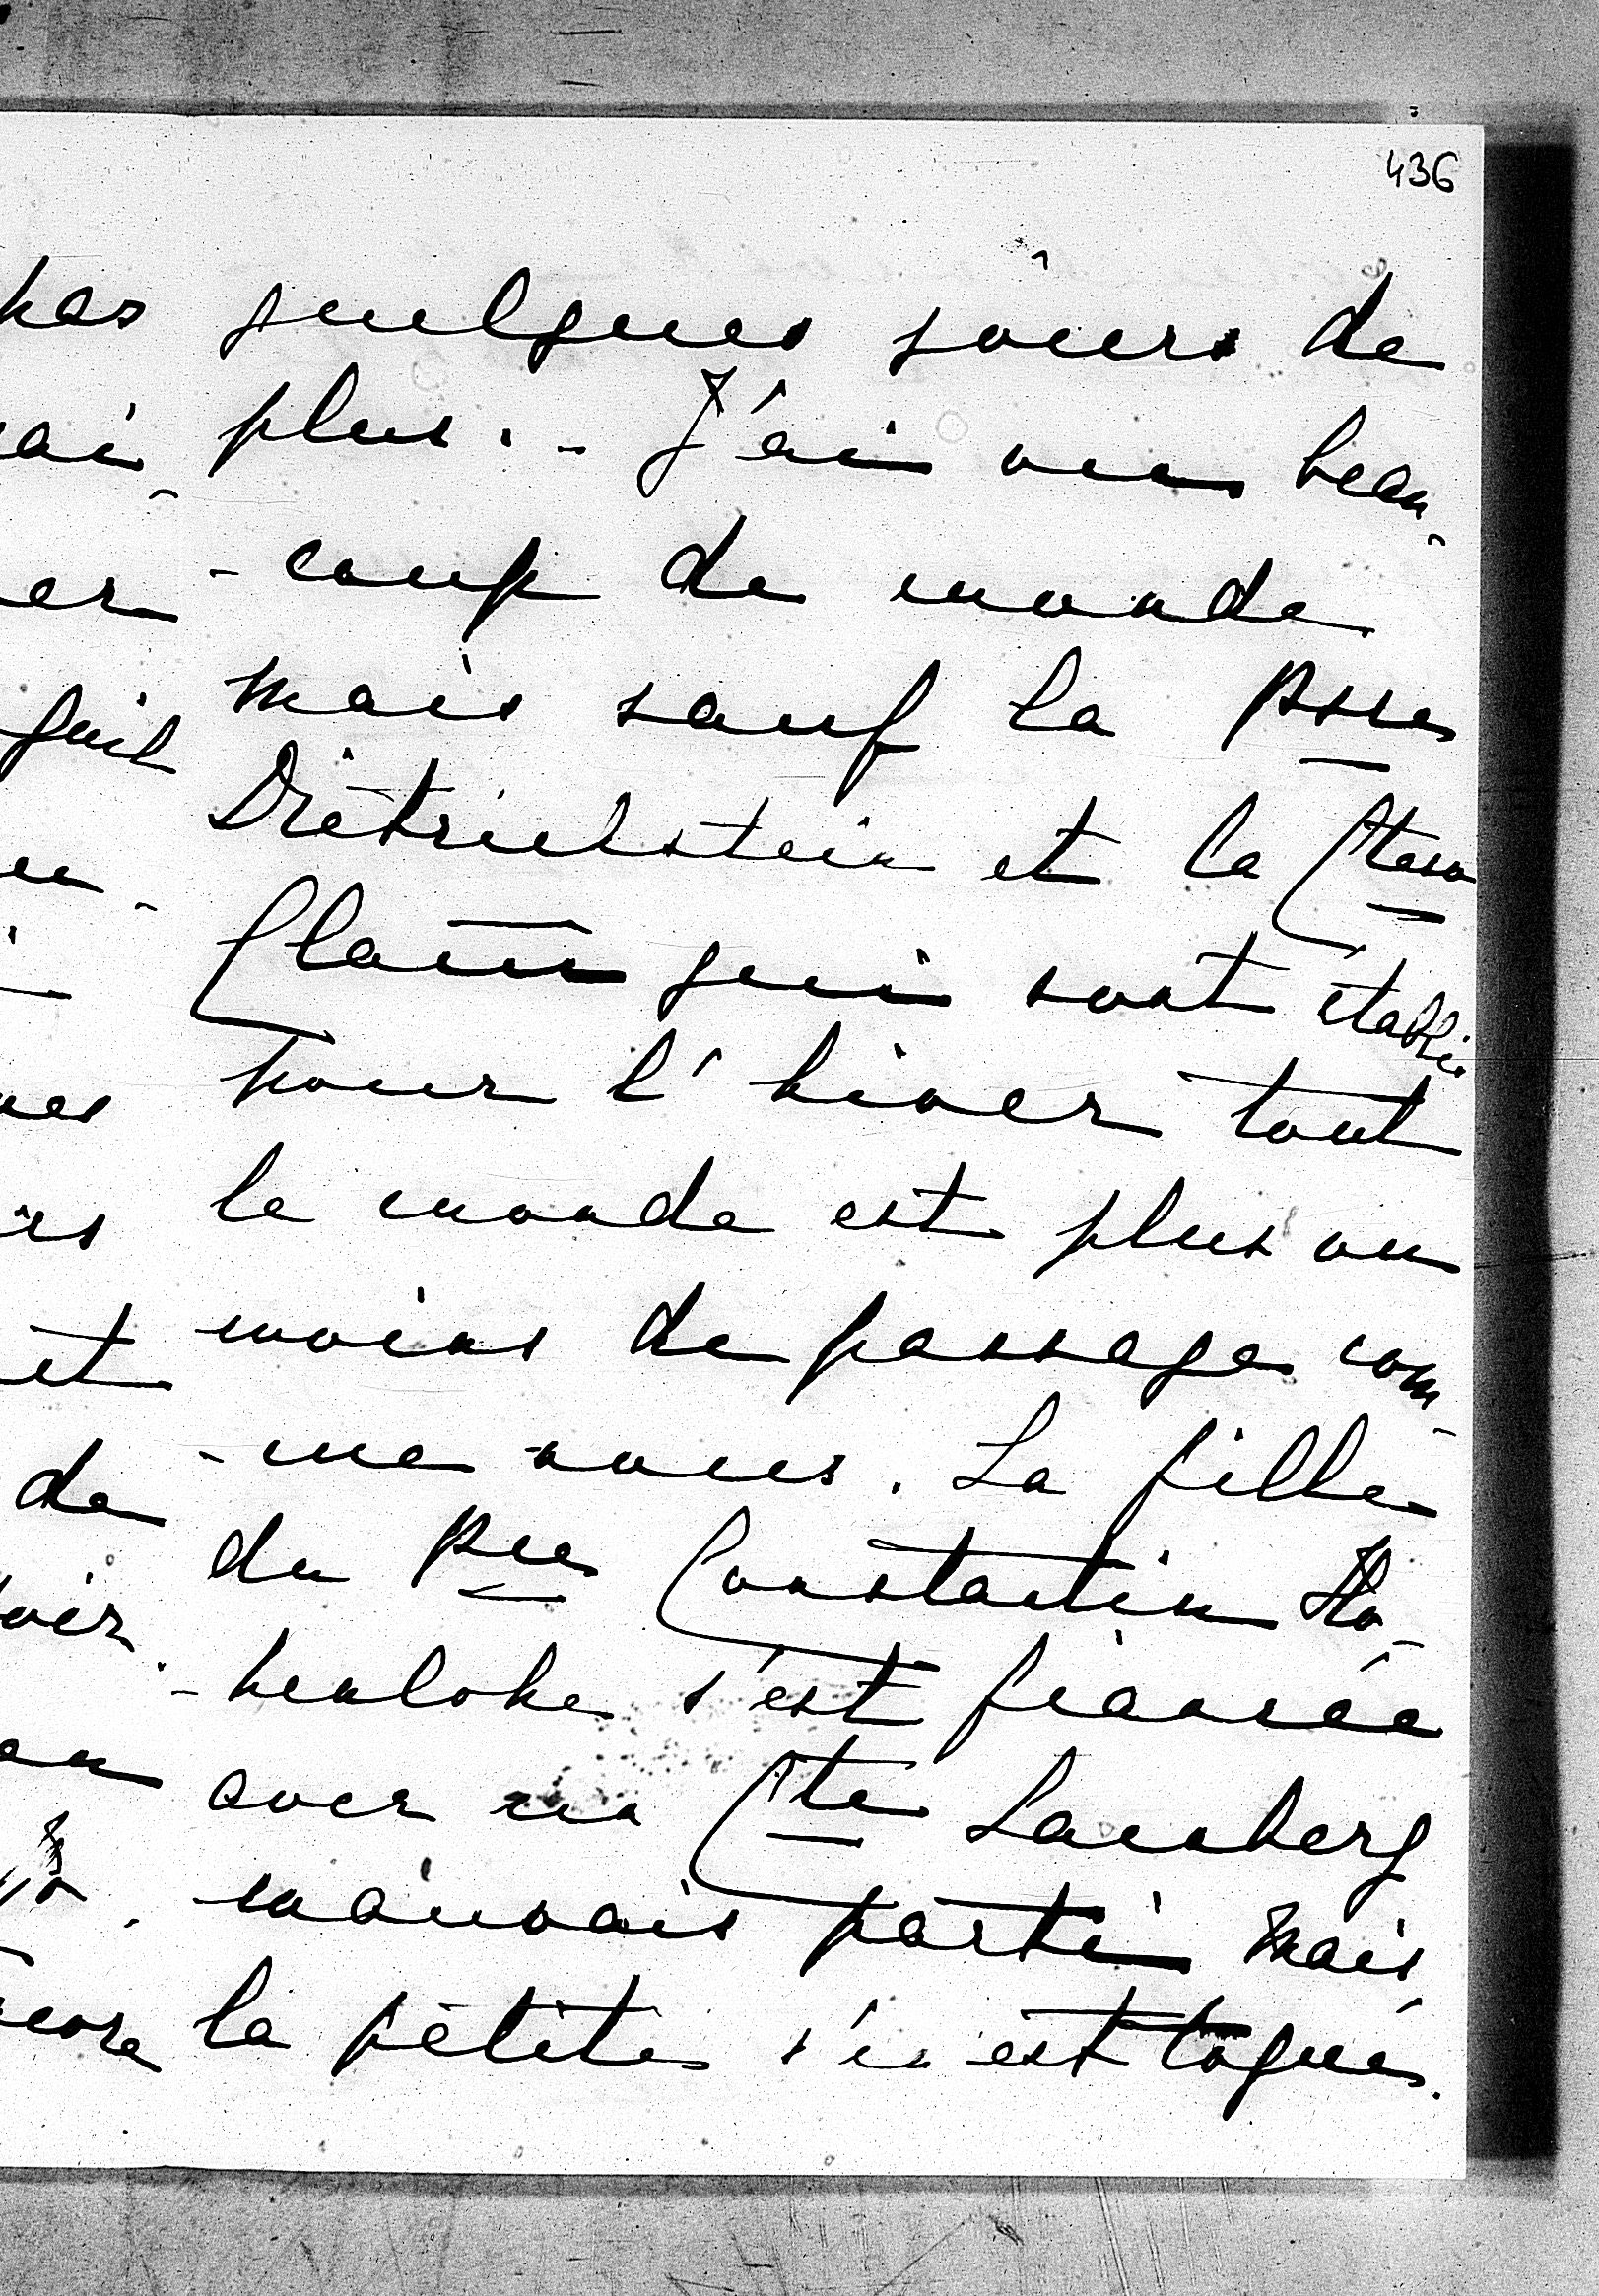 436
quelques jours de
plus. - J'ai vu beau-
-coup de monde
mais sauf la Psse
Dietrichstein et la Ctesse
Clam qui sont établies
pour l'hiver tout
le monde est plus ou
moins de passage com-
-me nous. La fille
du Pce Constantin Ho-
-henlohe s'est fiancée
avec un Cte Lamberg
mauvais parti mais
la petite s'en est toquée.